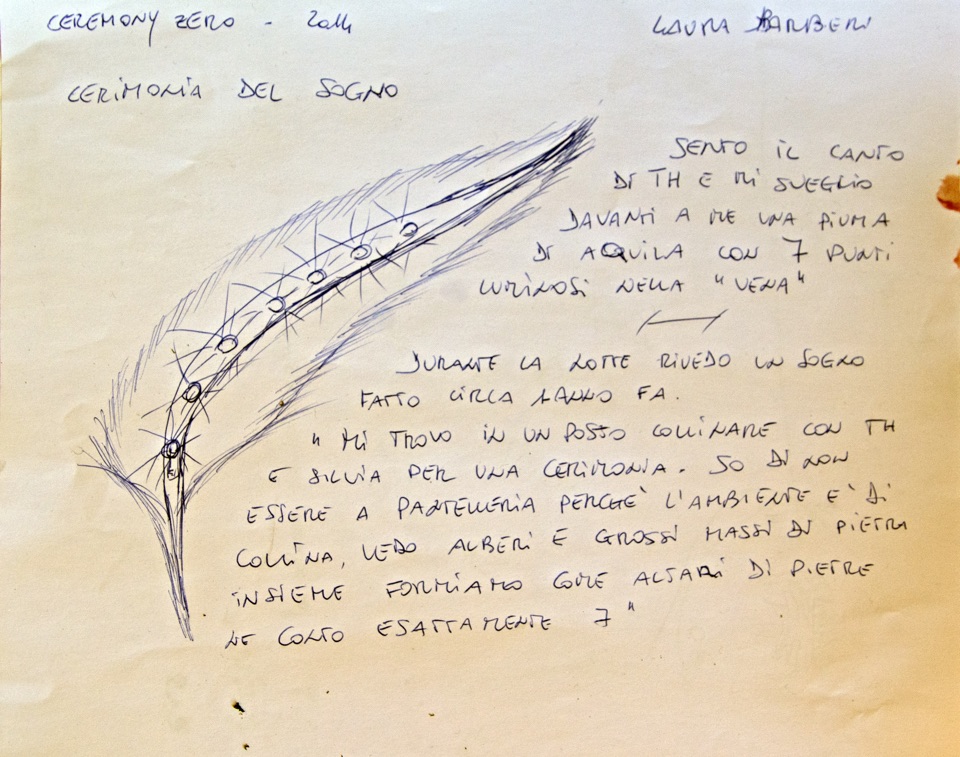 CEREMONY ZERO - 2014
LAURA BARBERI
CERIMONIA DEL SOGNO
SENTO IL CANTO
DI TH E MI SVEGLIO
DAVANTI A ME UNA PIUMA
DI AQUILA CON 7 PUNTI
LUMINOSI NELLA "VENA"
DURANTE LA NOTTE RIVEDO UN SOGNO
FATTO CIRCA 1 ANNO FA.
"MI TROVO IN UN POSTO COLLINARE CON TH
E SILVIA PER UNA CERIMONIA. SO DI NON
ESSERE A PANTELLERIA PERCHÈ L'AMBIENTE E' DI
COLLINA, VEDO ALBERI E GROSSI MASSI DI PIETRA
INSIEME FORMIAMO COME ALTARI DI PIETRE
NE CONTO ESATTAMENTE 7"